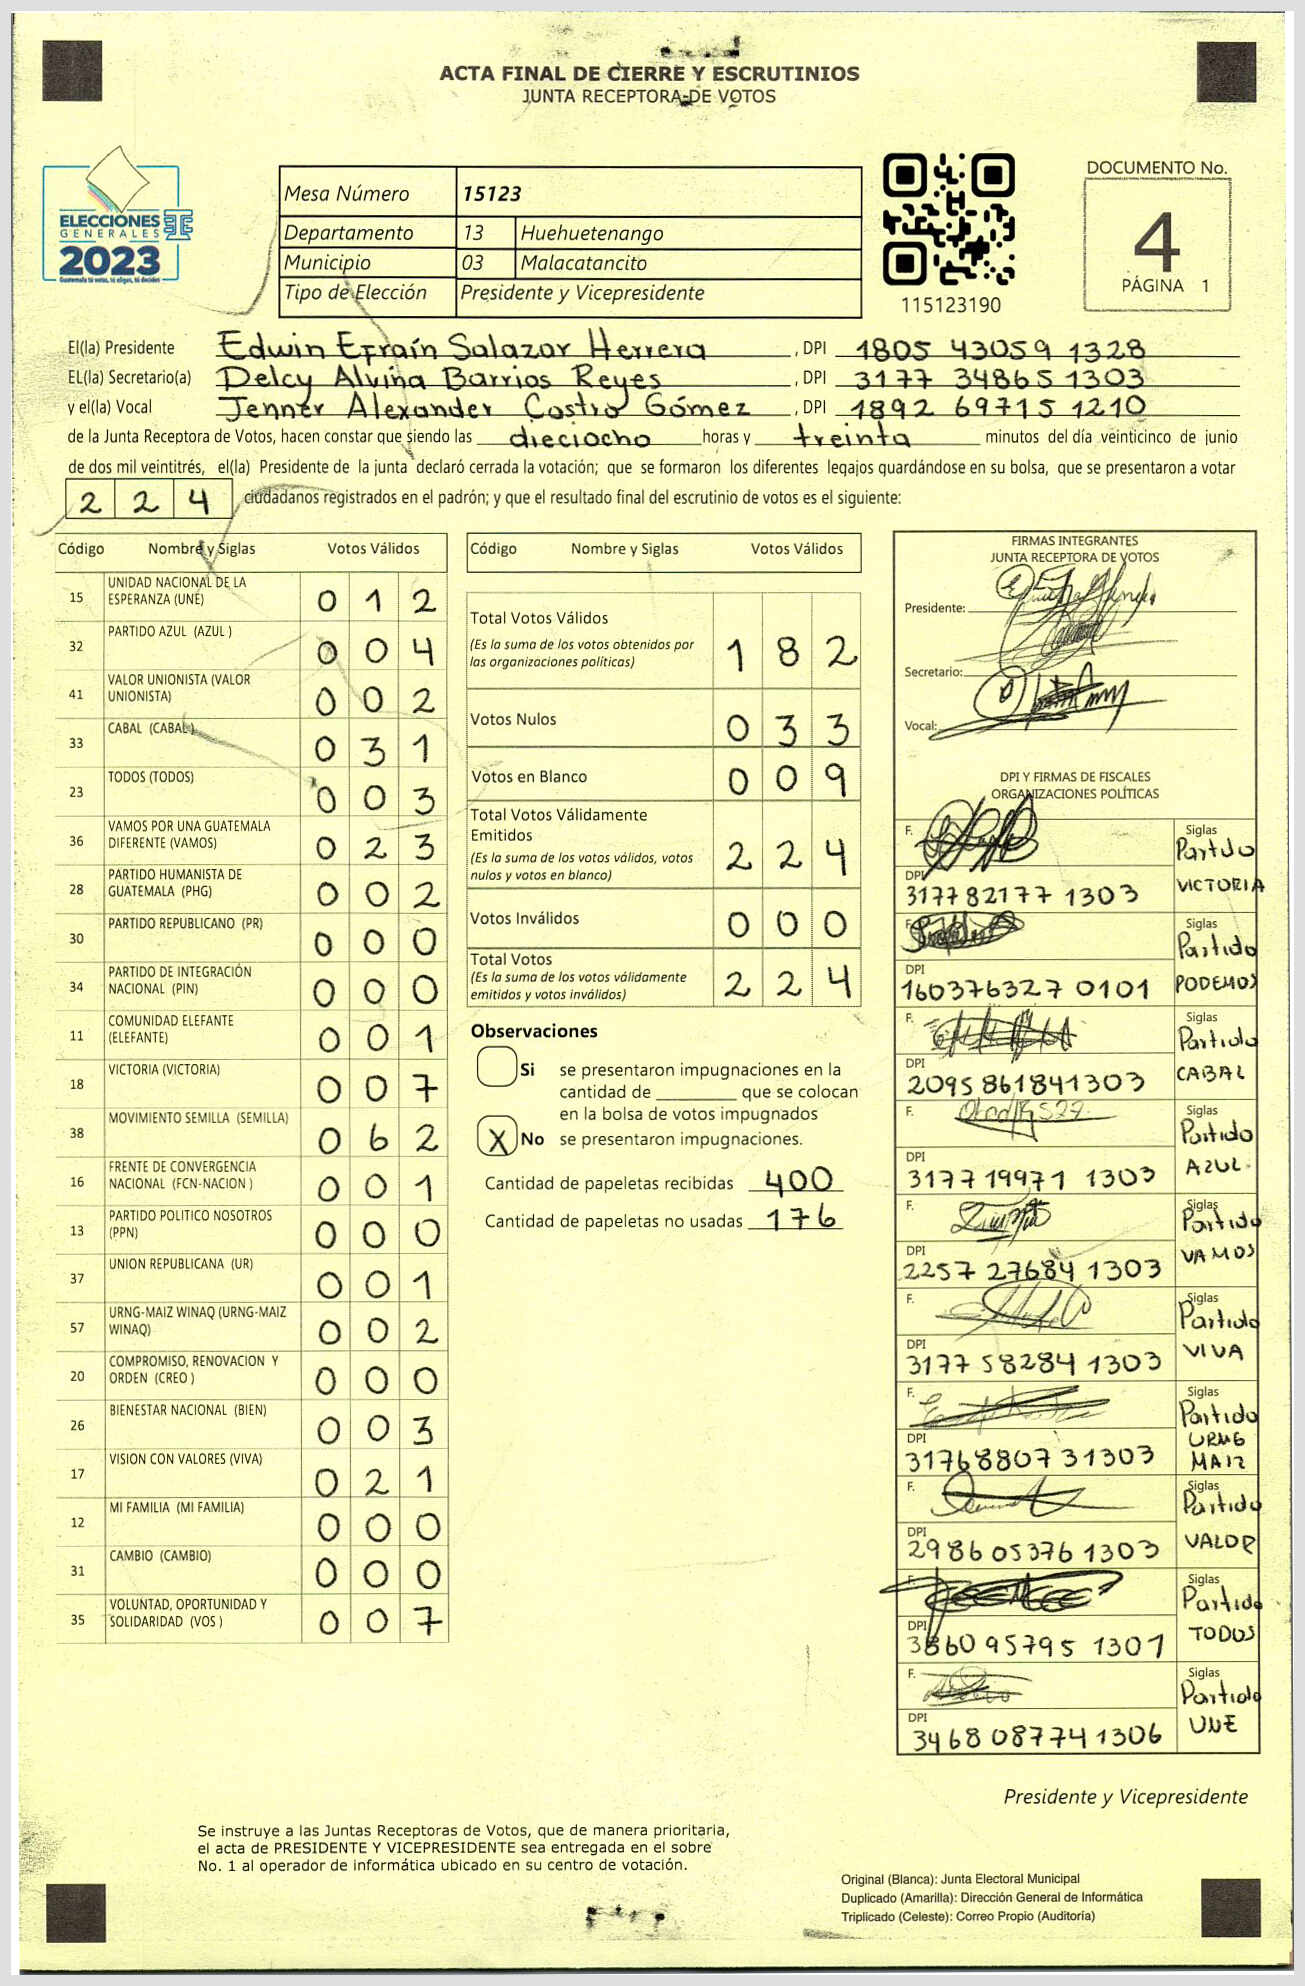 ACTA FINAL DE CIERRE Y ESCRUTINIOS
JUNTA RECEPTORA DE VOTOS
ELECCIONES
GENERALES
2023
Guatemala tú votas, tú eliges, tú decides
Mesa Número 15123
Departamento 13 Huehuetenango
Municipio 03 Malacatancito
Tipo de Elección Presidente y Vicepresidente
115123190
DOCUMENTO No.
4
PÁGINA 1
El(la) Presidente Edwin Efraín Salazar Herrera, DPI 1805 43059 1328
EL(la) Secretario(a) Delcy Alvina Barrios Reyes, DPI 3177 34865 1303
y el(la) Vocal Jenner Alexander Castro Gómez, DPI 1892 69715 1210
de la Junta Receptora de Votos, hacen constar que siendo las dieciocho horas y treinta minutos del día veinticinco de junio
de dos mil veintitrés, el(la) Presidente de la junta declaró cerrada la votación; que se formaron los diferentes legajos guardándose en su bolsa, que se presentaron a votar
224 ciudadanos registrados en el padrón; y que el resultado final del escrutinio de votos es el siguiente:
Código Nombre y Siglas Votos Válidos
15 UNIDAD NACIONAL DE LA ESPERANZA (UNE) 012
32 PARTIDO AZUL (AZUL ) 004
41 VALOR UNIONISTA (VALOR UNIONISTA) 002
33 CABAL (CABAL) 031
23 TODOS (TODOS) 003
36 VAMOS POR UNA GUATEMALA DIFERENTE (VAMOS) 023
28 PARTIDO HUMANISTA DE GUATEMALA (PHG) 002
30 PARTIDO REPUBLICANO (PR) 000
34 PARTIDO DE INTEGRACIÓN NACIONAL (PIN) 000
11 COMUNIDAD ELEFANTE (ELEFANTE) 001
18 VICTORIA (VICTORIA) 007
38 MOVIMIENTO SEMILLA (SEMILLA) 062
16 FRENTE DE CONVERGENCIA NACIONAL (FCN-NACION ) 001
13 PARTIDO POLITICO NOSOTROS (PPN) 000
37 UNION REPUBLICANA (UR) 001
57 URNG-MAIZ WINAQ (URNG-MAIZ WINAQ) 002
20 COMPROMISO, RENOVACION Y ORDEN (CREO ) 000
26 BIENESTAR NACIONAL (BIEN) 003
17 VISION CON VALORES (VIVA) 021
12 MI FAMILIA (MI FAMILIA) 000
31 CAMBIO (CAMBIO) 000
35 VOLUNTAD, OPORTUNIDAD Y SOLIDARIDAD (VOS ) 007
Código Nombre y Siglas Votos Válidos
Total Votos Válidos
(Es la suma de los votos obtenidos por
las organizaciones políticas) 182
Votos Nulos 033
Votos en Blanco 009
Total Votos Válidamente
Emitidos
(Es la suma de los votos válidos, votos
nulos y votos en blanco) 224
Votos Inválidos 000
Total Votos
(Es la suma de los votos válidamente
emitidos y votos inválidos) 224
Observaciones
Si se presentaron impugnaciones en la
cantidad de ________ que se colocan
en la bolsa de votos impugnados
X No se presentaron impugnaciones.
Cantidad de papeletas recibidas 400
Cantidad de papeletas no usadas 176
FIRMAS INTEGRANTES
JUNTA RECEPTORA DE VOTOS
Presidente:
Secretario:
Vocal:
DPI Y FIRMAS DE FISCALES
ORGANIZACIONES POLÍTICAS
F. Siglas
Partido
VICTORIA
DPI
3177 82177 1303
F. Siglas
Partido
PODEMOS
DPI
160376327 0101
F. Siglas
Partido
CABAL
DPI
2095 86184 1303
F. Siglas
Partido
AZUL
DPI
3177 19971 1303
F. Siglas
Partido
VAMOS
DPI
2257 27684 1303
F. Siglas
Partido
VIVA
DPI
3177 58284 1303
F. Siglas
Partido
URNG
MAIZ
DPI
3176880731303
F. Siglas
Partido
VALOR
DPI
2986 05376 1303
F. Siglas
Partido
TODOS
DPI
3860 95795 1301
F. Siglas
Partido
UNE
DPI
3468 08774 1306
Presidente y Vicepresidente
Se instruye a las Juntas Receptoras de Votos, que de manera prioritaria,
el acta de PRESIDENTE Y VICEPRESIDENTE sea entregada en el sobre
No. 1 al operador de informática ubicado en su centro de votación.
Original (Blanca): Junta Electoral Municipal
Duplicado (Amarilla): Dirección General de Informática
Triplicado (Celeste): Correo Propio (Auditoría)